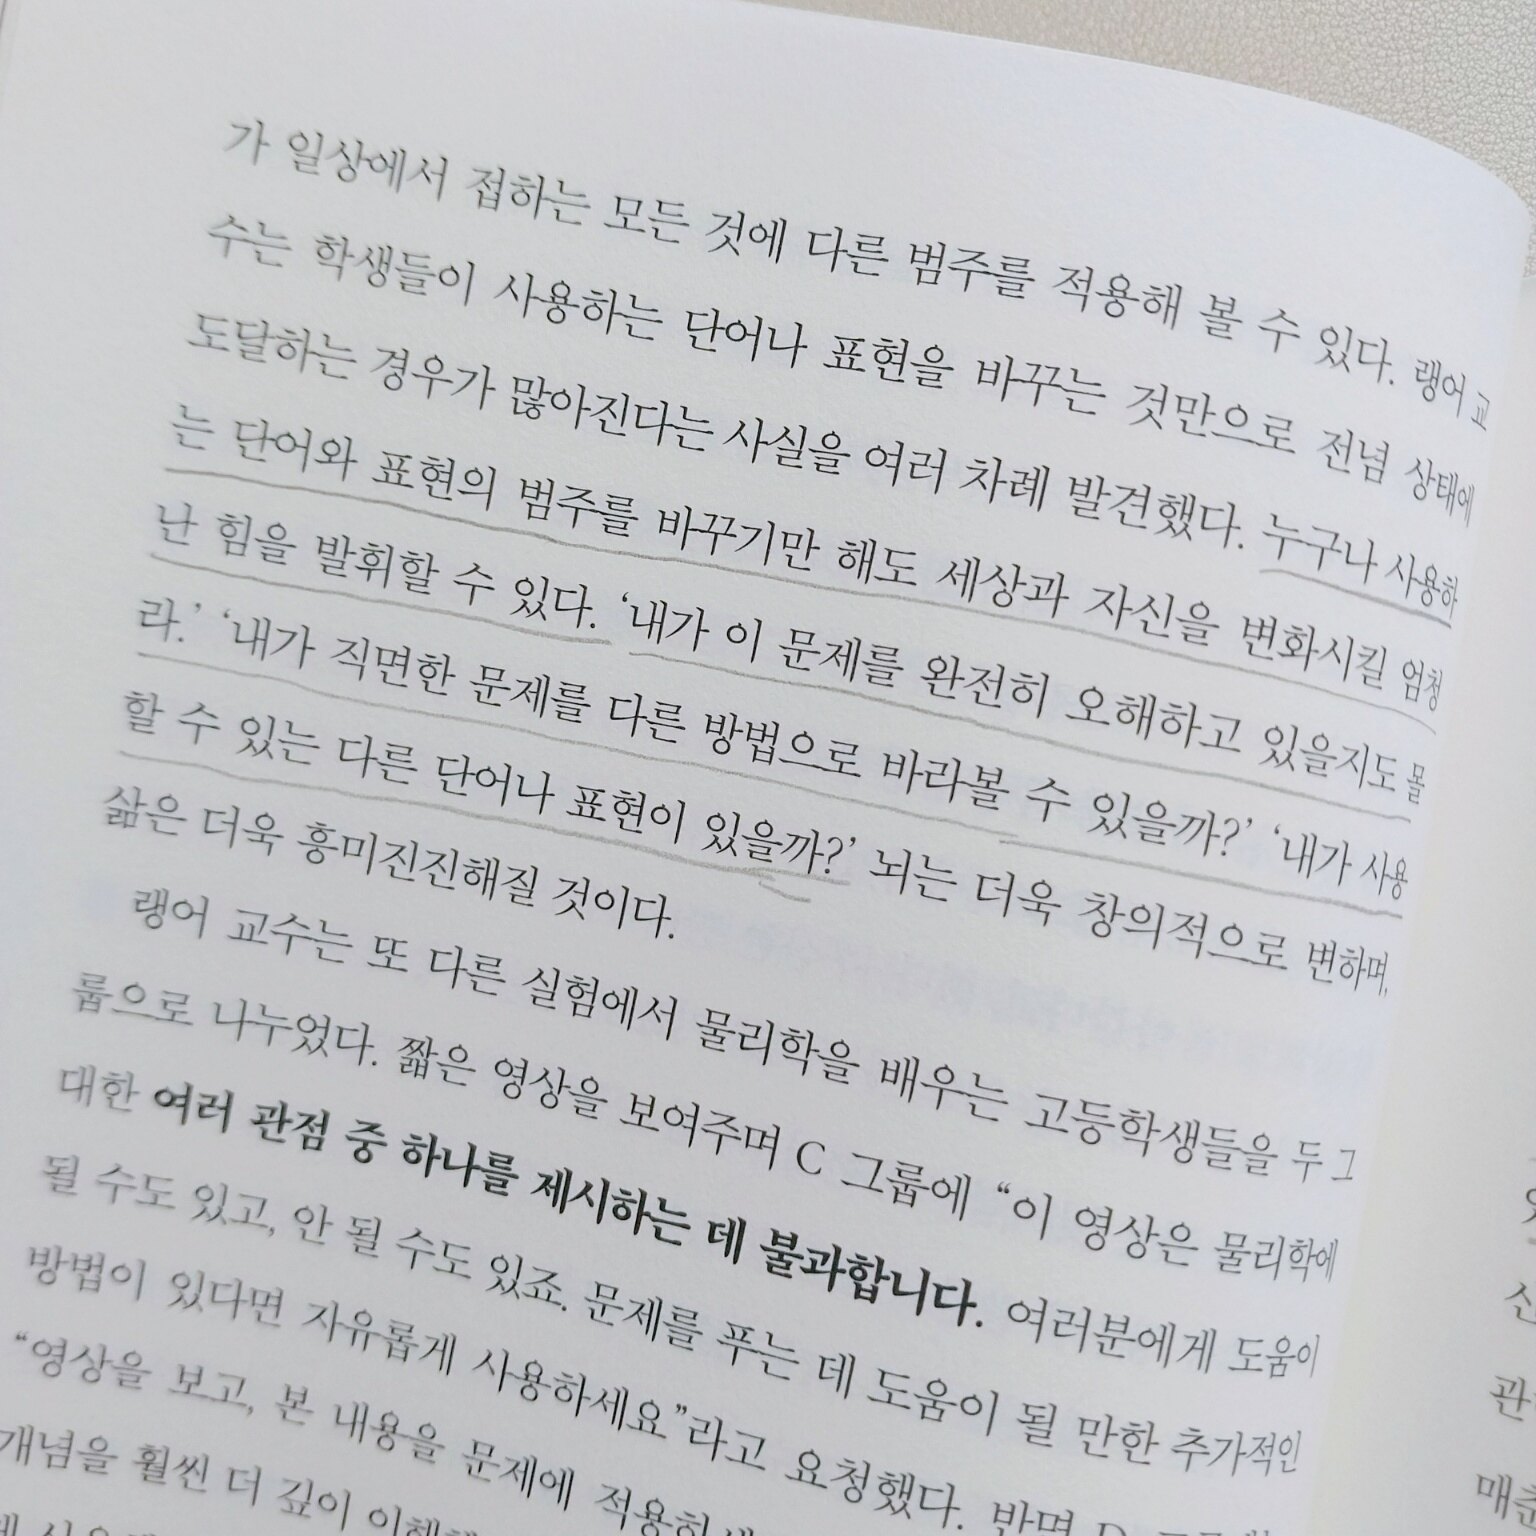 가 일상에서 접하는 모든 것에 다른 범주를 적용해 볼 수 있다. 랭어 교
수는 학생들이 사용하는 단어나 표현을 바꾸는 것만으로 전념 상태에
도달하는 경우가 많아진다는 사실을 여러 차례 발견했다. 누구나 사용하
는 단어와 표현의 범주를 바꾸기만 해도 세상과 자신을 변화시킬 엄청
난 힘을 발휘할 수 있다. ‘내가 이 문제를 완전히 오해하고 있을지도 몰
라.’ ‘내가 직면한 문제를 다른 방법으로 바라볼 수 있을까?’ ‘내가 사용
할 수 있는 다른 단어나 표현이 있을까?’ 뇌는 더욱 창의적으로 변하며,
삶은 더욱 흥미진진해질 것이다.
랭어 교수는 또 다른 실험에서 물리학을 배우는 고등학생들을 두 그
룹으로 나누었다. 짧은 영상을 보여주며 C 그룹에 “이 영상은 물리학에
대한 여러 관점 중 하나를 제시하는 데 불과합니다. 여러분에게 도움이
될 수도 있고, 안 될 수도 있죠. 문제를 푸는 데 도움이 될 만한 추가적인
방법이 있다면 자유롭게 사용하세요”라고 요청했다. 반면 D
“영상을 보고, 본 내용을 문제에
개념을 훨씬 더 깊이
신
관
매출